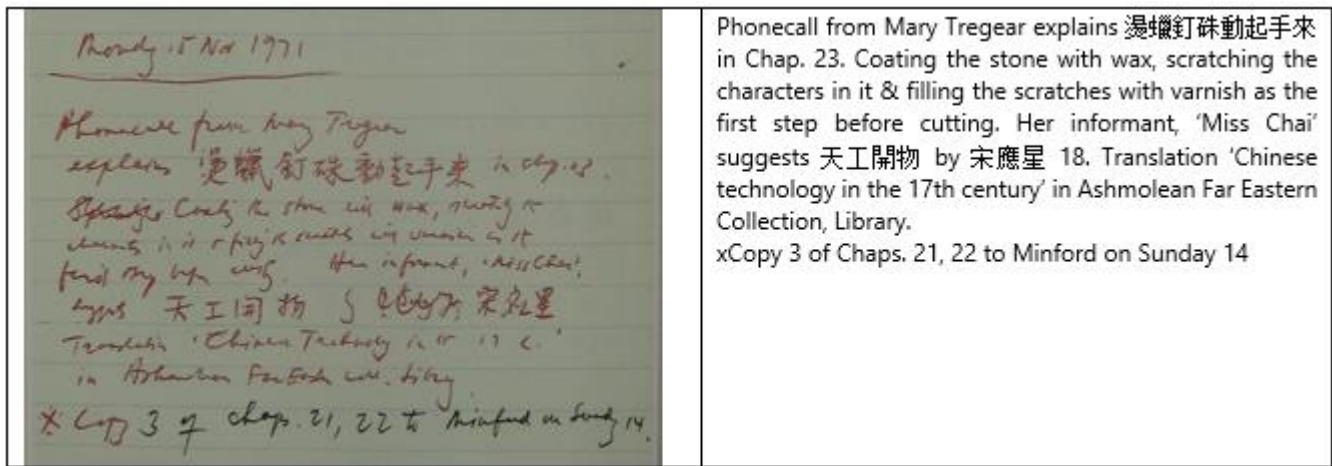 Monday 15 Nov 1971
Phonecall from Mary Tregear
explains 燙蠟釘硃動起手來 in Chap. 23.
Coating the stone with wax, scratching the
characters in it & filling the scratches with varnish as the
first step before cutting. Her informant, 'Miss Chai',
suggests 天工開物 by 宋應星
Translation 'Chinese Technology in the 17 C.'
in Ashmolean Far Eastern Coll. Library
x Copy 3 of Chaps. 21, 22 to Minford on Sunday 14.
Phonecall from Mary Tregear explains 燙蠟釘硃動起手來
in Chap. 23. Coating the stone with wax, scratching the
characters in it & filling the scratches with varnish as the
first step before cutting. Her informant, ‘Miss Chai’
suggests 天工開物 by 宋應星 18. Translation ‘Chinese
technology in the 17th century’ in Ashmolean Far Eastern
Collection, Library.
xCopy 3 of Chaps. 21, 22 to Minford on Sunday 14